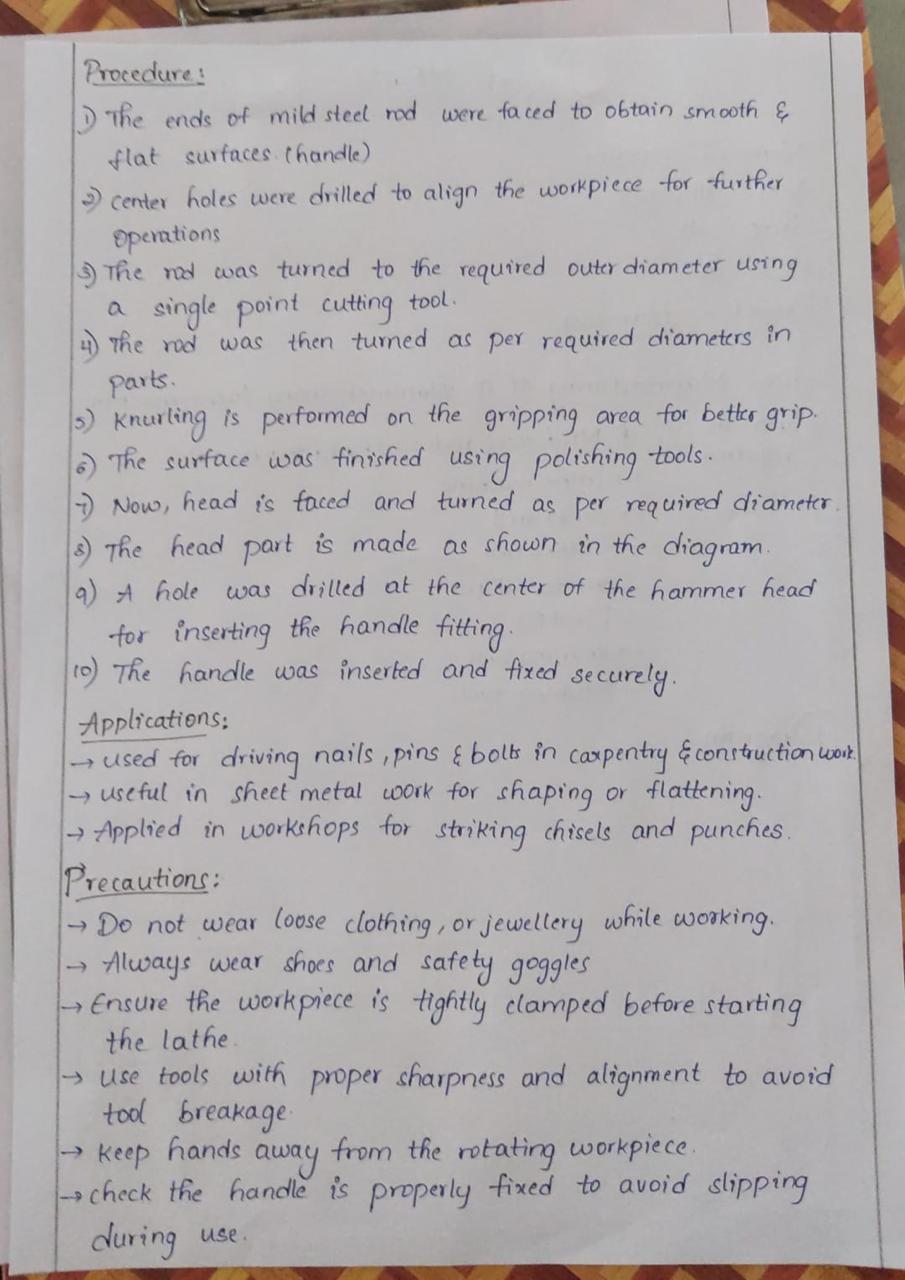 Procedure:
1) The ends of mild steel rod were faced to obtain smooth &
flat surfaces. (handle)
2) center holes were drilled to align the workpiece for further
operations
3) The rod was turned to the required outer diameter using
a single point cutting tool.
4) The rod was then turned as per required diameters in
parts.
5) Knurling is performed on the gripping area for better grip.
6) The surface was finished using polishing tools.
7) Now, head is faced and turned as per required diameter.
8) The head part is made as shown in the diagram.
9) A hole was drilled at the center of the hammer head
for inserting the handle fitting.
10) The handle was inserted and fixed securely.
Applications:
→ used for driving nails, pins & bolts in carpentry & construction work.
→ useful in sheet metal work for shaping or flattening.
→ Applied in workshops for striking chisels and punches.
Precautions:
→ Do not wear loose clothing, or jewellery while working.
→ Always wear shoes and safety goggles
→ Ensure the workpiece is tightly clamped before starting
the lathe.
→ Use tools with proper sharpness and alignment to avoid
tool breakage.
→ keep hands away from the rotating workpiece.
→ check the handle is properly fixed to avoid slipping
during use.